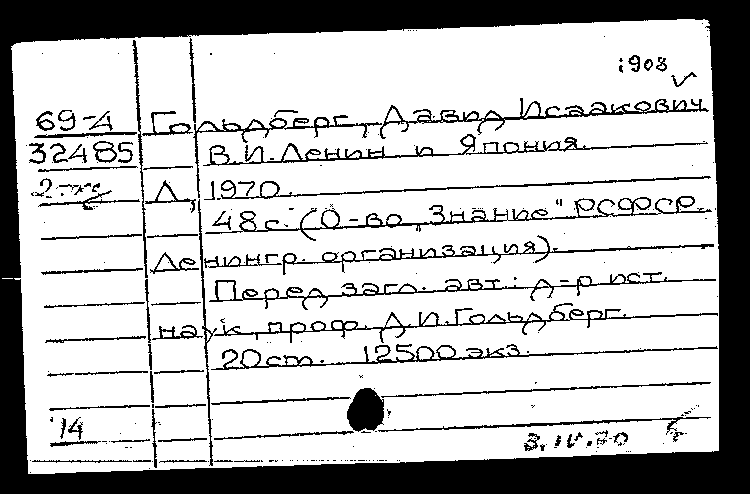 1908
69-4 Гольдберг, Давид Исаакович
32485 В.И.Ленин и Япония.
Л, 1970.
48с. (О-во „Знание" РСФСР.
Ленингр. организация).
Перед загл. авт.: д-р ист.
наук, проф. Д.И.Гольдберг.
20 ст. 12500 экз.
14
3.IV.70